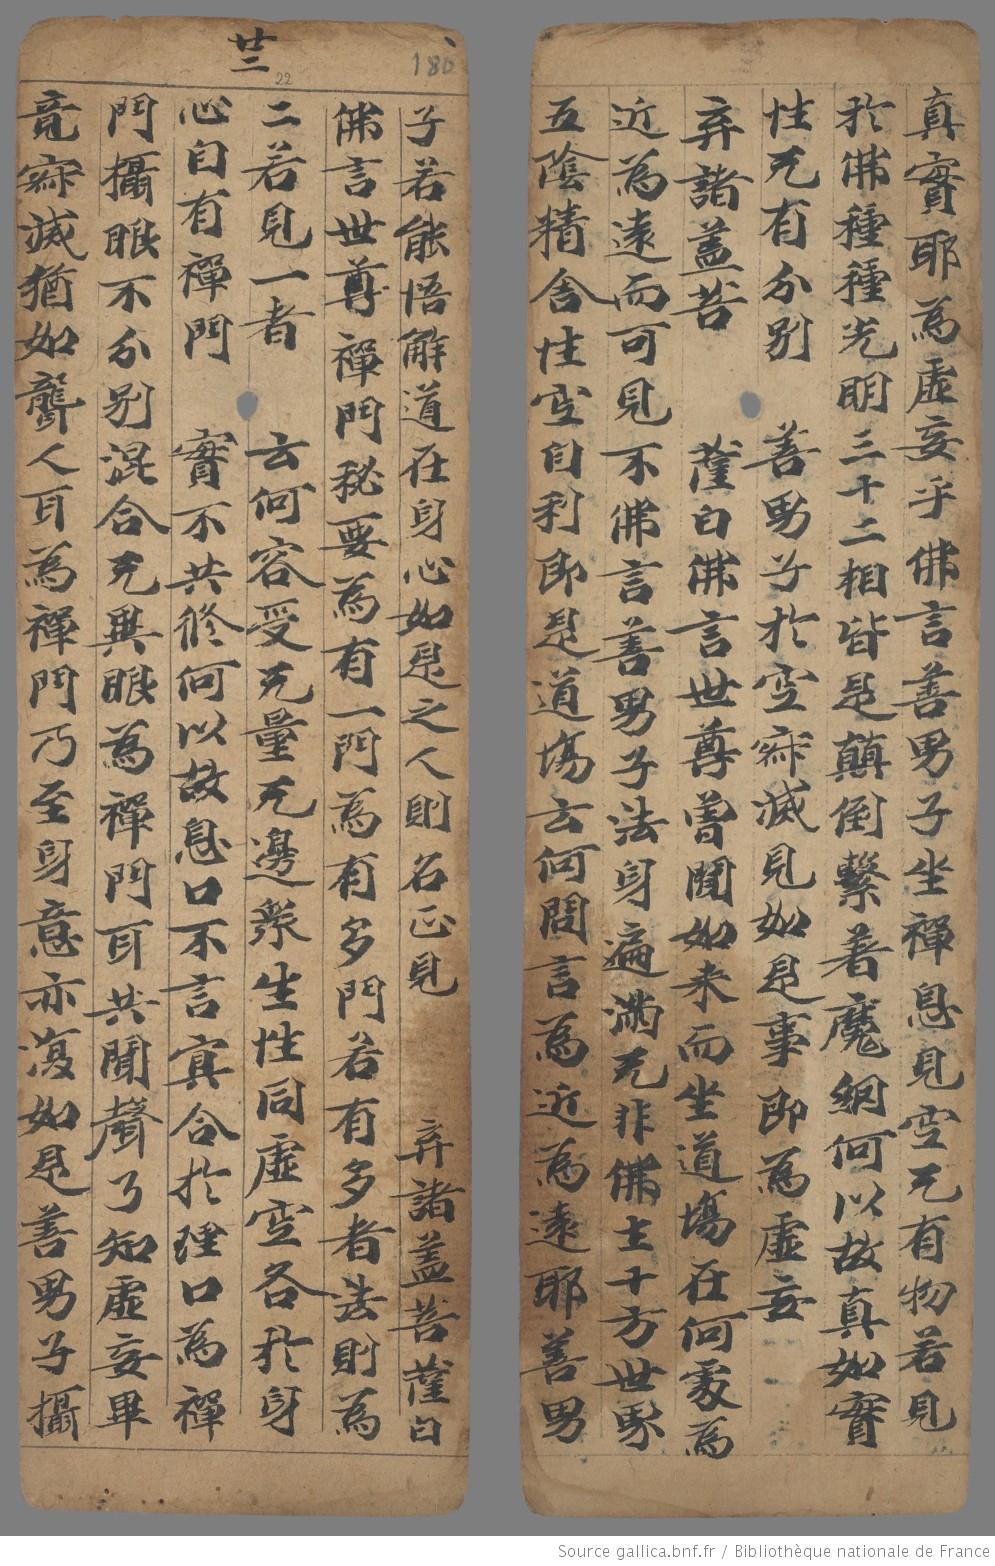 真實耶為虛妄乎佛言善男子坐禪息見空无有物若見
於佛種種光明三十二相皆是顛倒繫著魔網何以故真如實
性无有分別 善男子於空寂滅見如是事即為虛妄
弃諸盖菩 薩白佛言世尊曾聞如来而坐道場在何處為
近為遠而可見不佛言善男子法身遍滿无非佛土十方世界
五陰精舍性空自利即是道場云何問言為近為遠耶善男
180
廿二
22
子若能悟解道在身心如是之人則名正見 弃諸盖菩薩白
佛言世尊禪門秘要為有一門為有多門若有多者法則為
二若見一者 云何容受无量无邊衆生性同虛空各於身
心自有禪門 實不共修何以故息口不言冥合於理口為禪
門攝眼不分別混合无異眼為禪門耳共聞聲了知虛妄畢
竟寂滅猶如聾人耳為禪門乃至身意亦復如是善男子攝
Source gallica.bnf.fr / Bibliothèque nationale de France